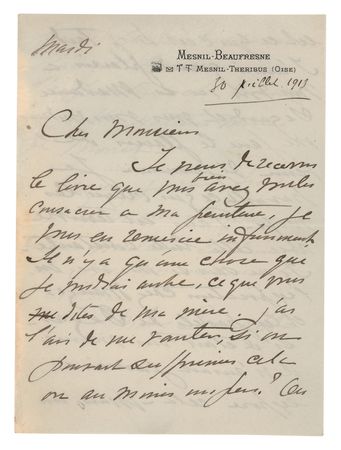 Mardi
MESNIL-BEAUFRESNE
T T MESNIL-THERIBUS (OISE)
30 juillet 1913
Cher Monsieur
Je viens de recevoir
le livre que vous avez bien voulu
consacrer a ma peinture, je
vous en remercie infiniment
Il n'y a qu'une chose que
je voudrais autre, ce que vous
dites de ma mère. j'ai
l'air de me vanter, si on
pouvait supprimer cela
ou au moins un peu? On